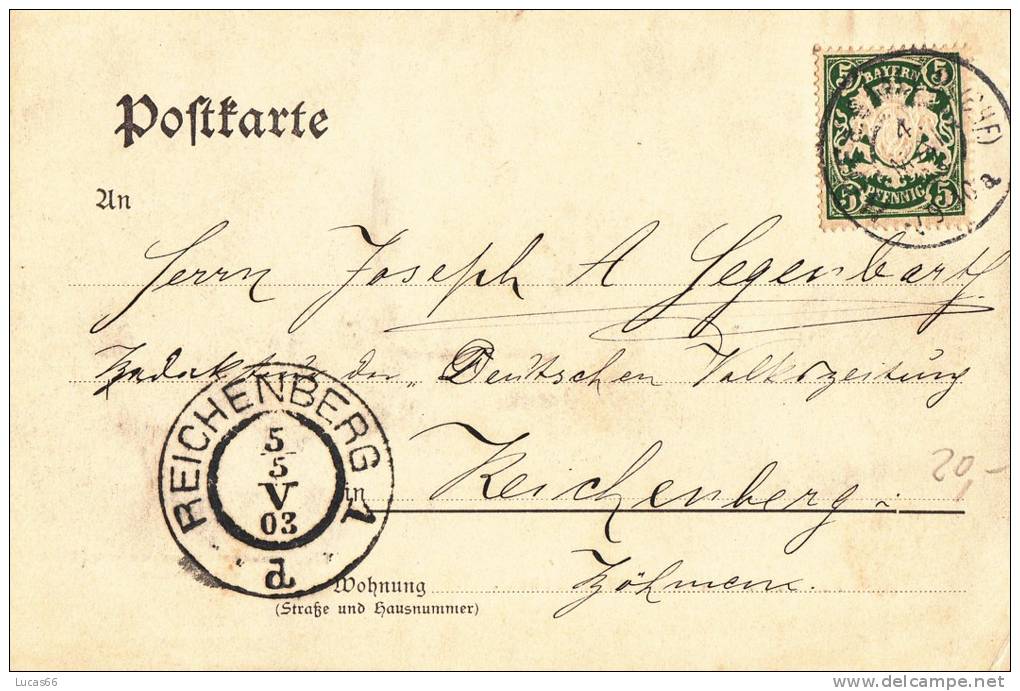 Postkarte
5 BAYERN 5
4
5 PFENNIG 5
a
An
Herrn Joseph A Gegenbart
der "Deutschen Volkszeitung
REICHENBERG 1
5
5
V
03
d
in Reichenberg
20,-
Böhmen.
Wohnung
(Straße und Hausnummer)
Lucas66
www.delcampe.net